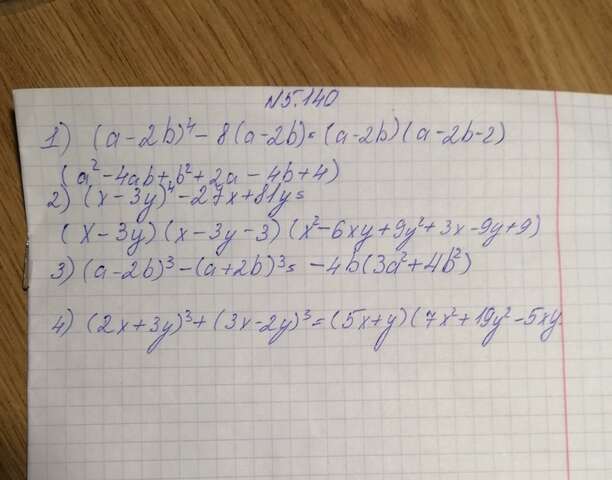 №5.140
1) (a-2b)⁴-8(a-2b)=(a-2b)(a-2b-2)
(a²-4ab+b²+2a-4b+4)
2) (x-3y)⁴-27x+81y=
(x-3y)(x-3y-3)(x²-6xy+9y²+3x-9y+9)
3) (a-2b)³-(a+2b)³= -4b(3a²+4b²)
4) (2x+3y)³+(3x-2y)³=(5x+y)(7x²+19y²-5xy